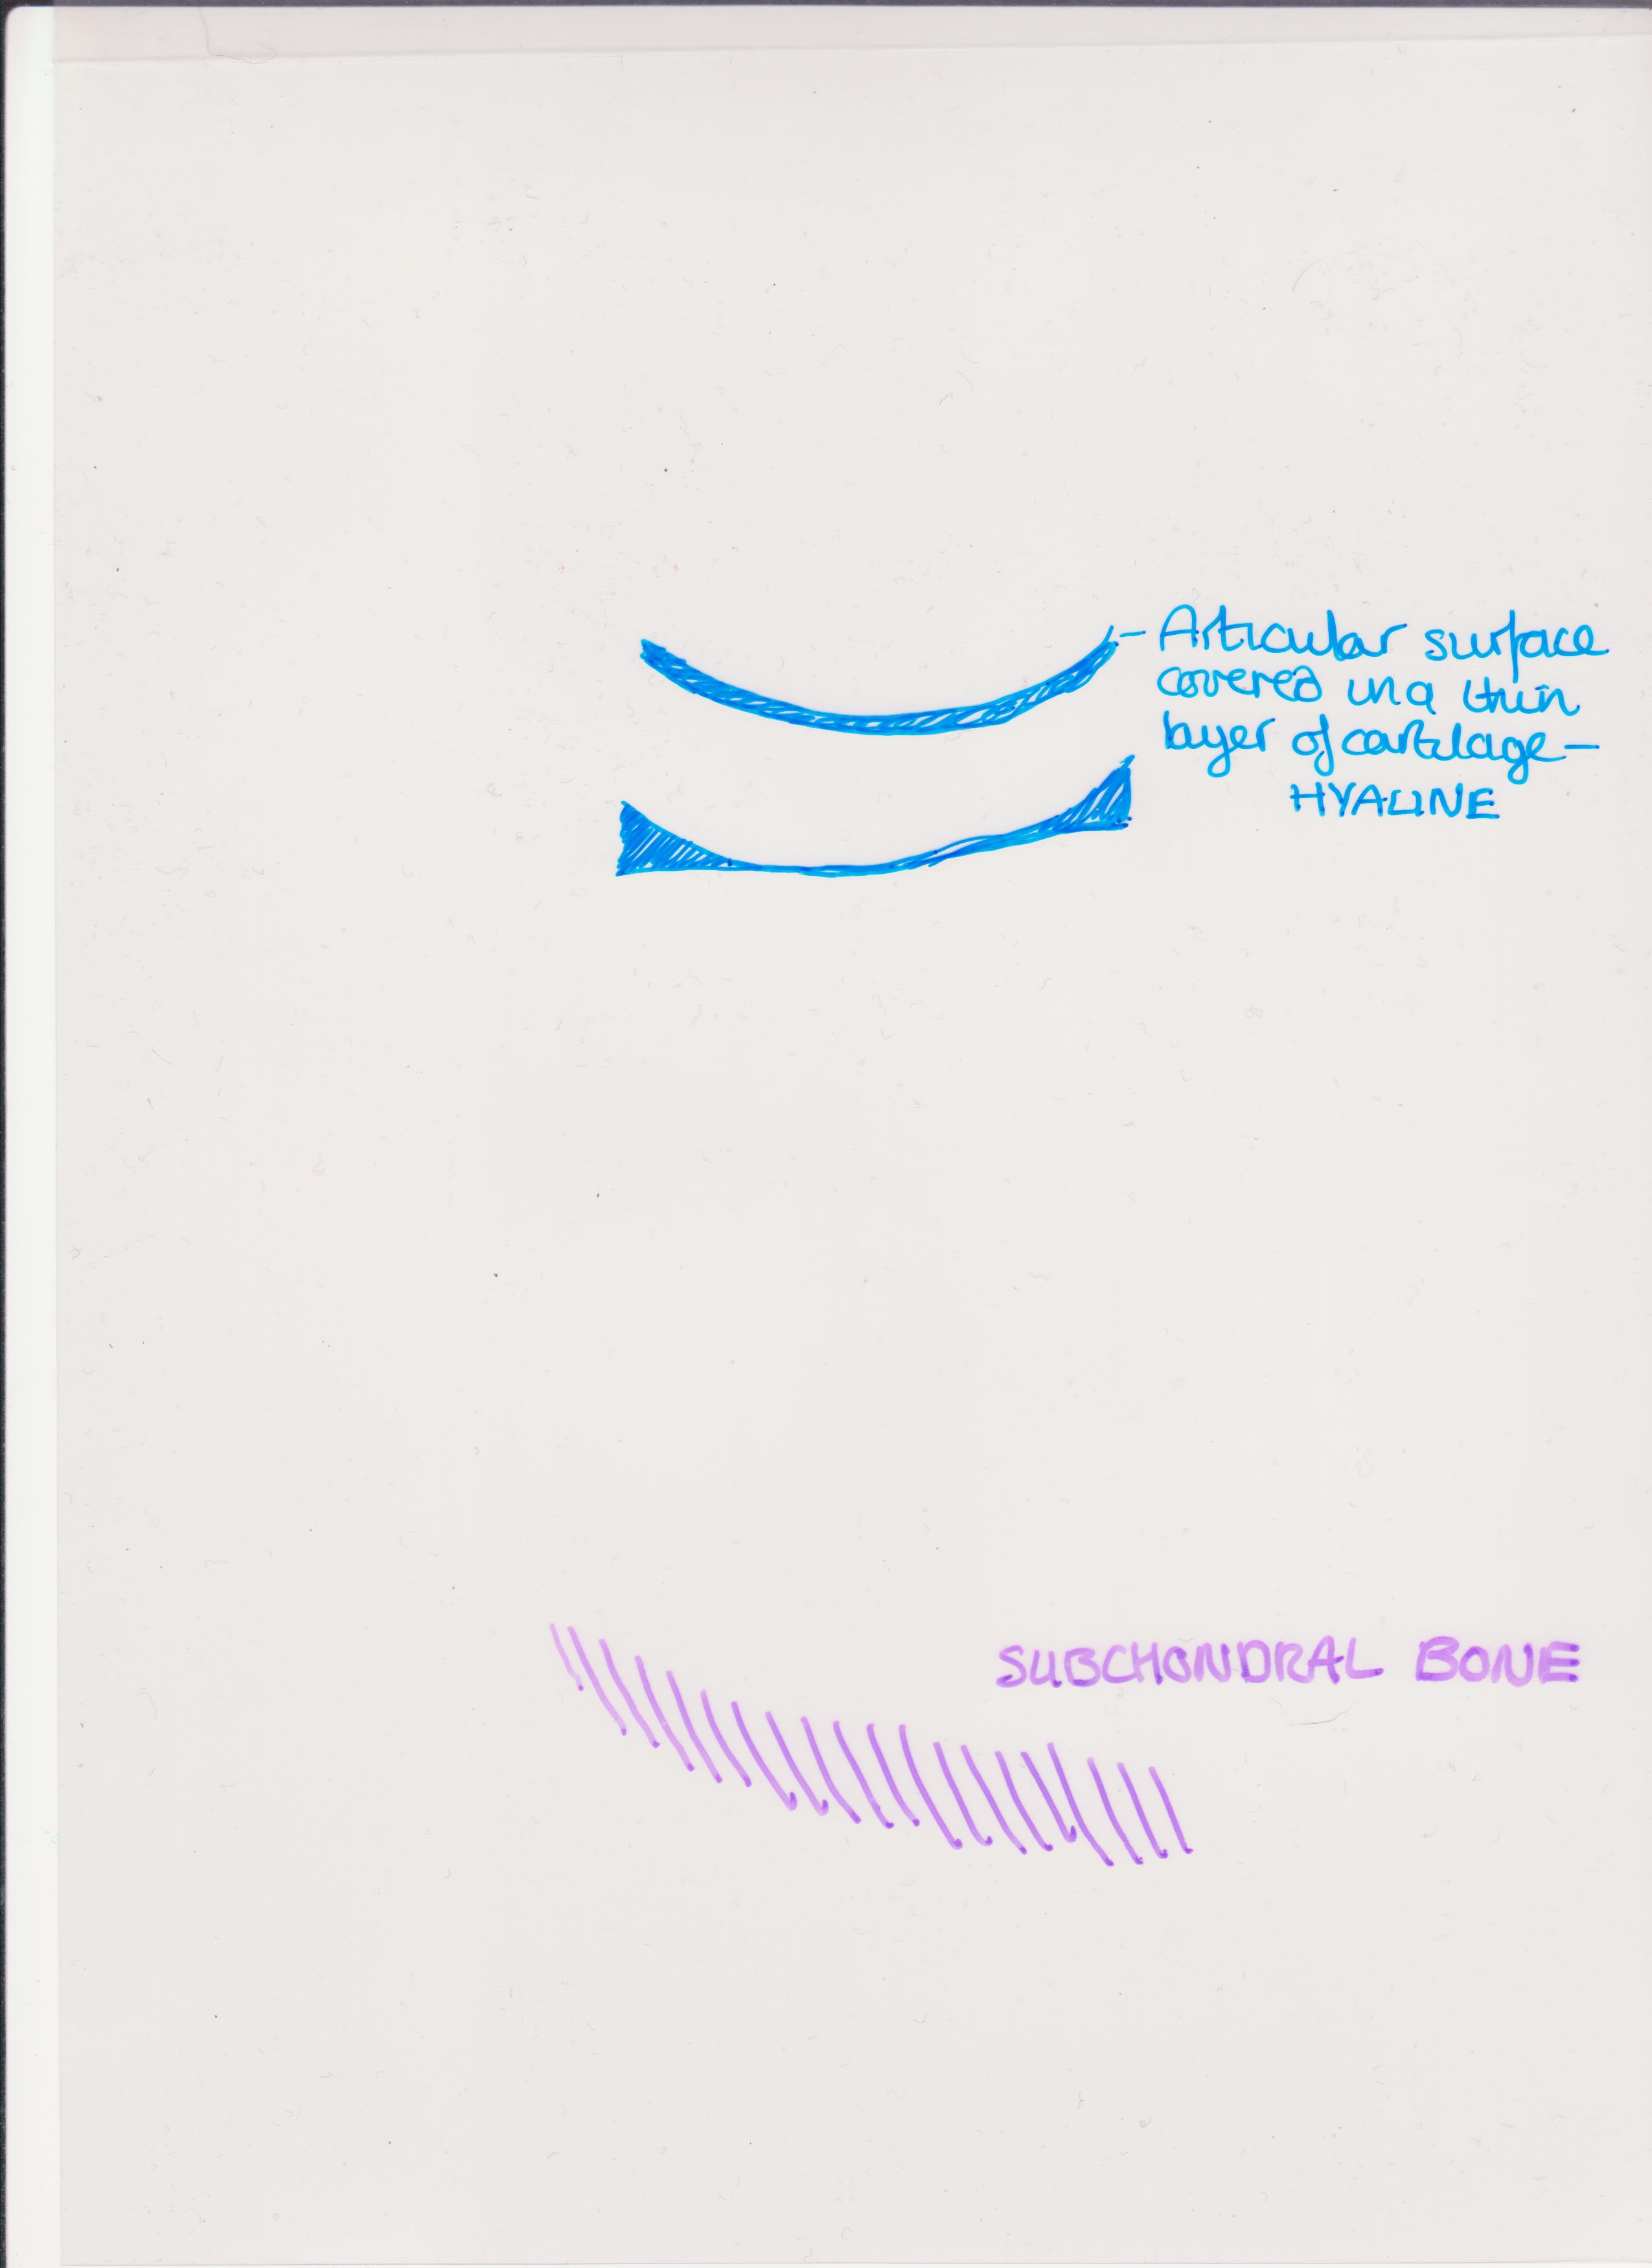 - Articular surface
covered in a thin
layer of cartilage -
HYALINE
SUBCHONDRAL BONE